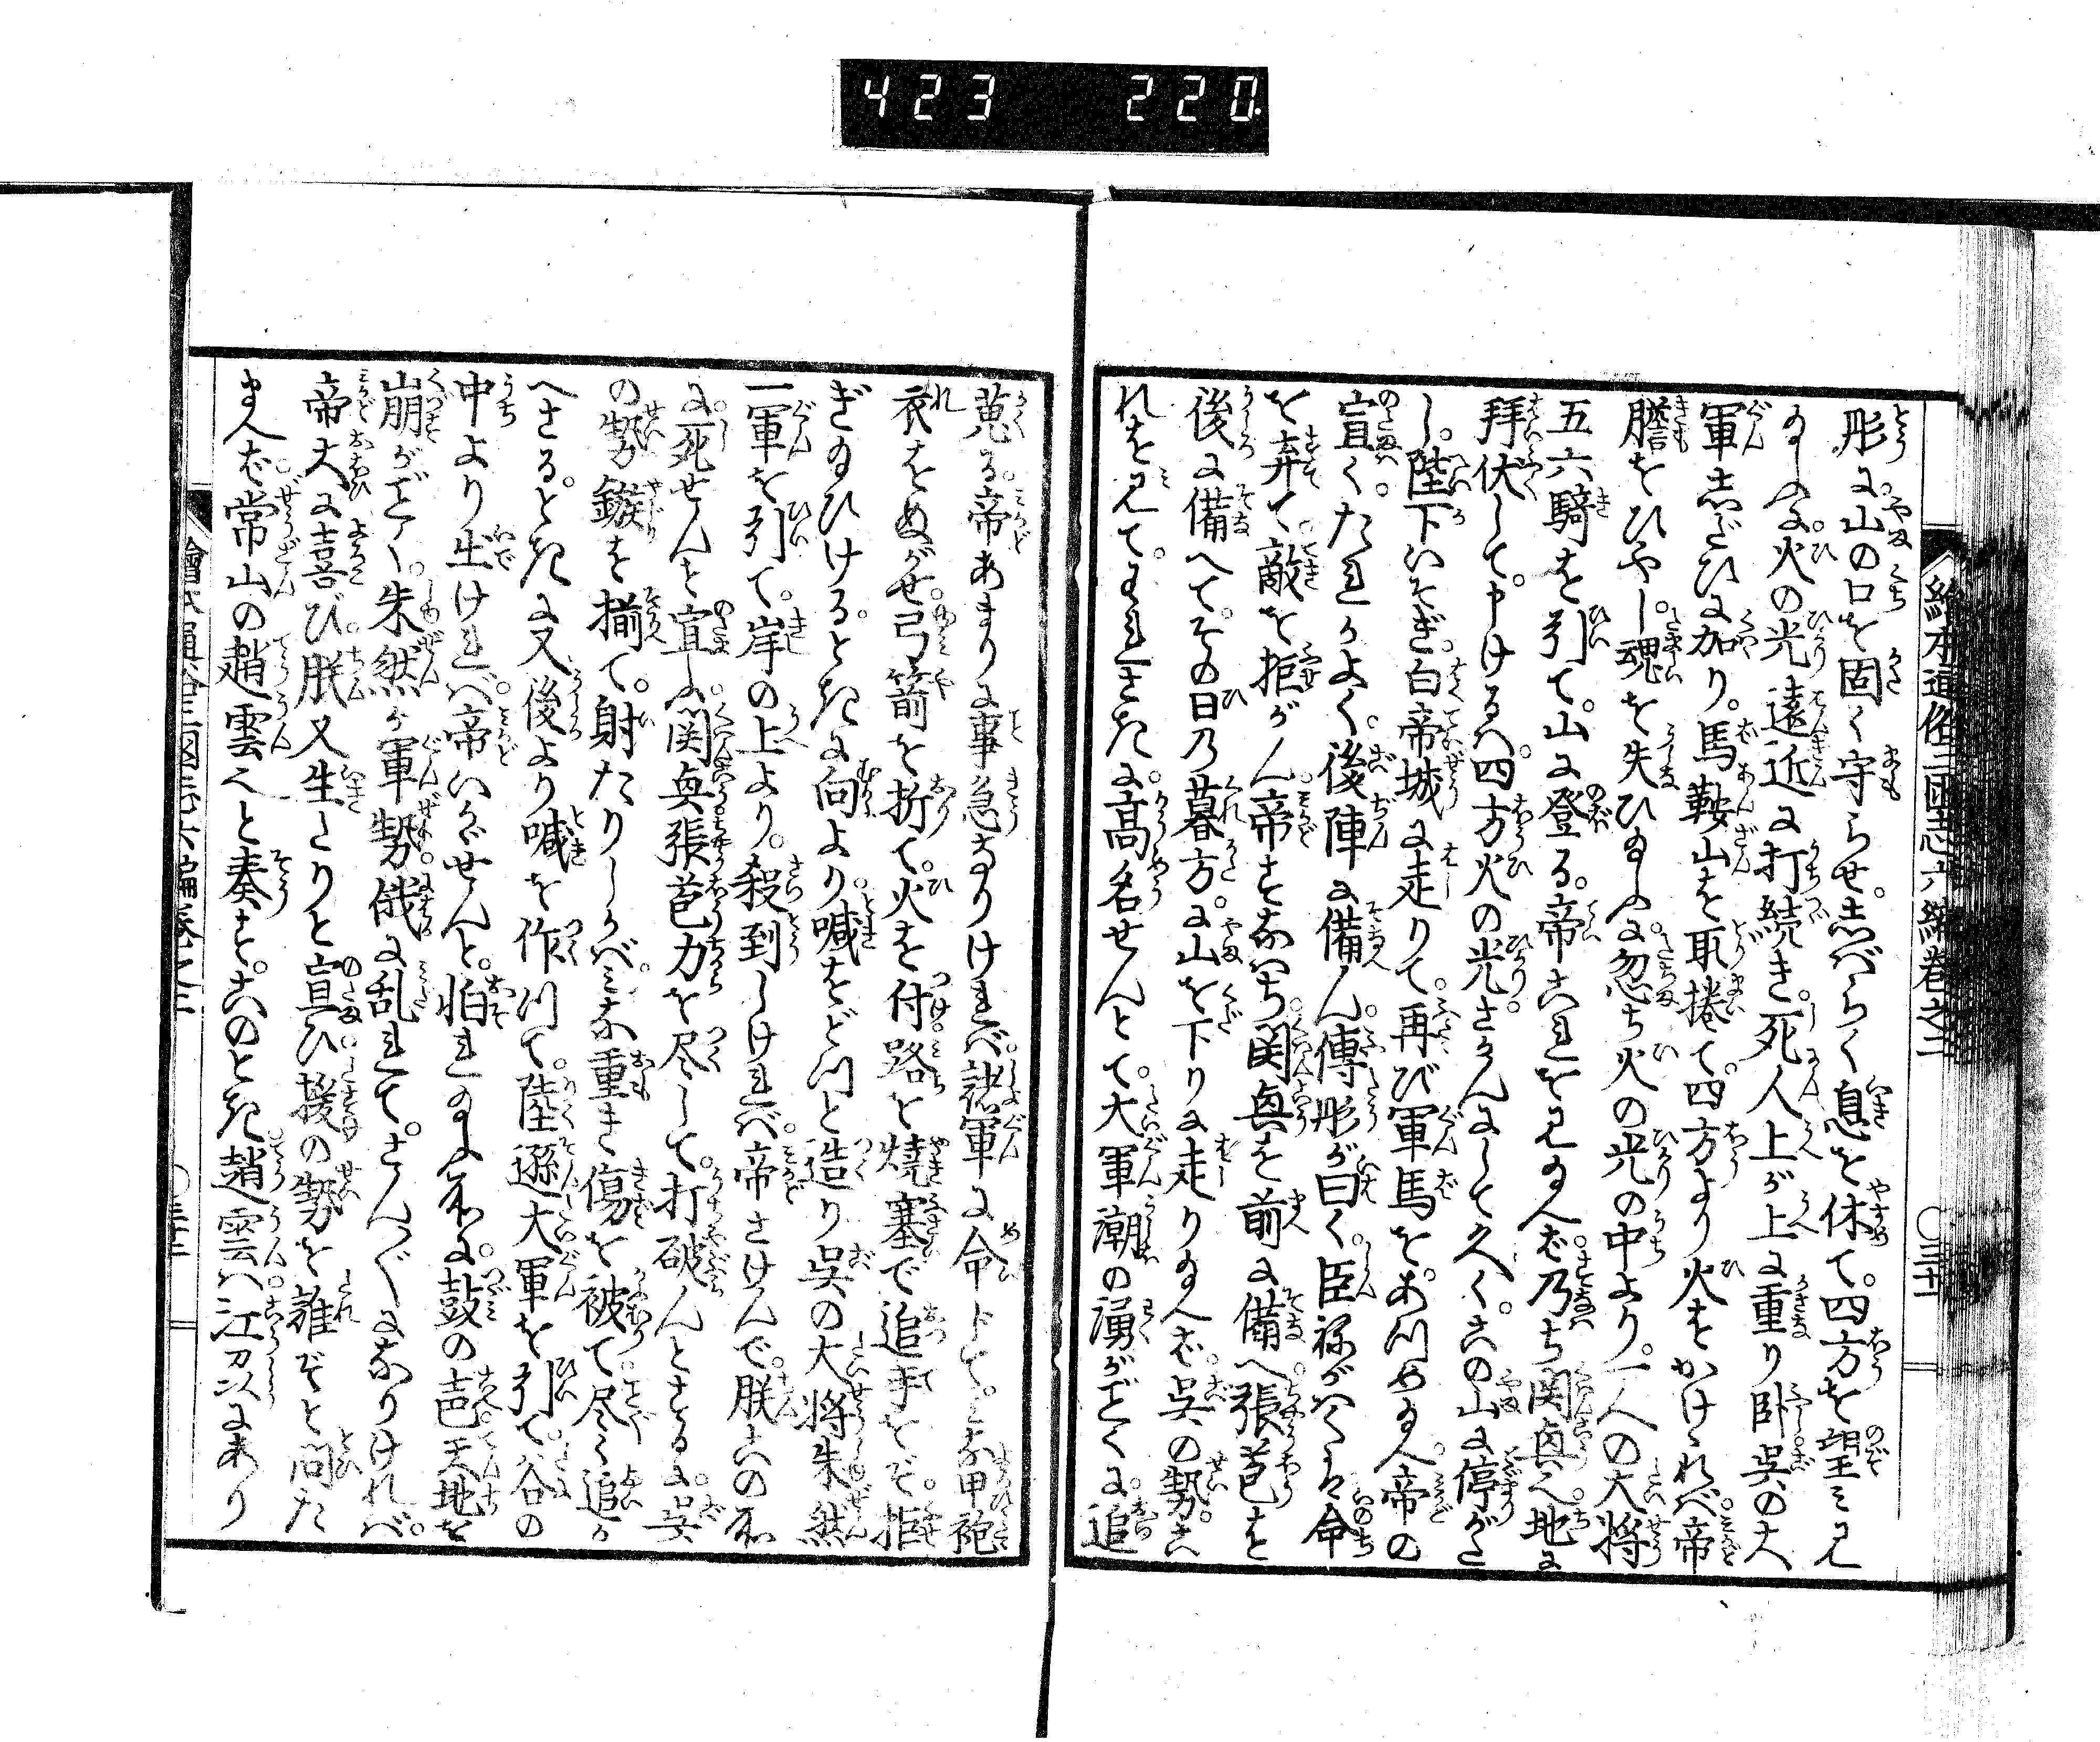 423 220
絵本通俗三国志六編巻之二 〇三十一
彤に山の口を固く守らせ。志ばらく息を休て。四方を望み見
給ふに火の光遠近に打続き。死人上が上に重り臥呉の大
軍志だひに加り。馬鞍山を取捲て。四方より火をかけければ帝
膽をひやし。魂を失ひ給ふに忽ち火の光の中より。一人の大将
五六騎を引て。山に登る。帝これを見給へば乃ち関興也地に
拜伏して申けるハ。四方火の光さかんにして久く。この山に停がた
し。陛下いそぎ。白帝城に走りて。再び軍馬をあつめ給へ帝の
宣く。たれかよく。後陣に備ん。傅彤が曰く。臣祢がハくは命
を弃て。敵を拒がん。帝すなハち関興を前に備へ。張苞を
後に備へて。その日の暮方。に山を下りに走り給へば。呉の勢。こ
れを見て。われさきに。高名せんとて。大軍潮の湧がごとくに。追
蒐る。帝あまりに事急なりければ。諸軍に命下て。みな甲袍
衣をぬがせ。弓箭を折て。火を付路を焼塞で追手をぞ。拒
ぎ給ひける。ときに向より。喊をどつと造り呉の大将朱然
一軍を引て。岸の上より。殺到しければ。帝さけんで。朕この所
に死せんと宣ふ。関興張苞力を尽して。打破んとするに。呉
の勢鏃を揃て。射たりしかば。みな重き傷を被て。尽く追か
へさる。ときに又後より喊を作つて。陸遜大軍を引て。谷の
中より出ければ。帝いかゞせんと。怕れ給ふ所に。鼓の声天地を
崩がごとく。朱然が軍勢俄に乱れて。さん〴〵になりければ。
帝大に喜び。朕又生たりと宣ひ。援の勢を誰ぞと問た
まへば。常山の趙雲也と奏す。このとき趙雲ハ江州にあり
絵本通俗三国志六編巻之二 〇三十二